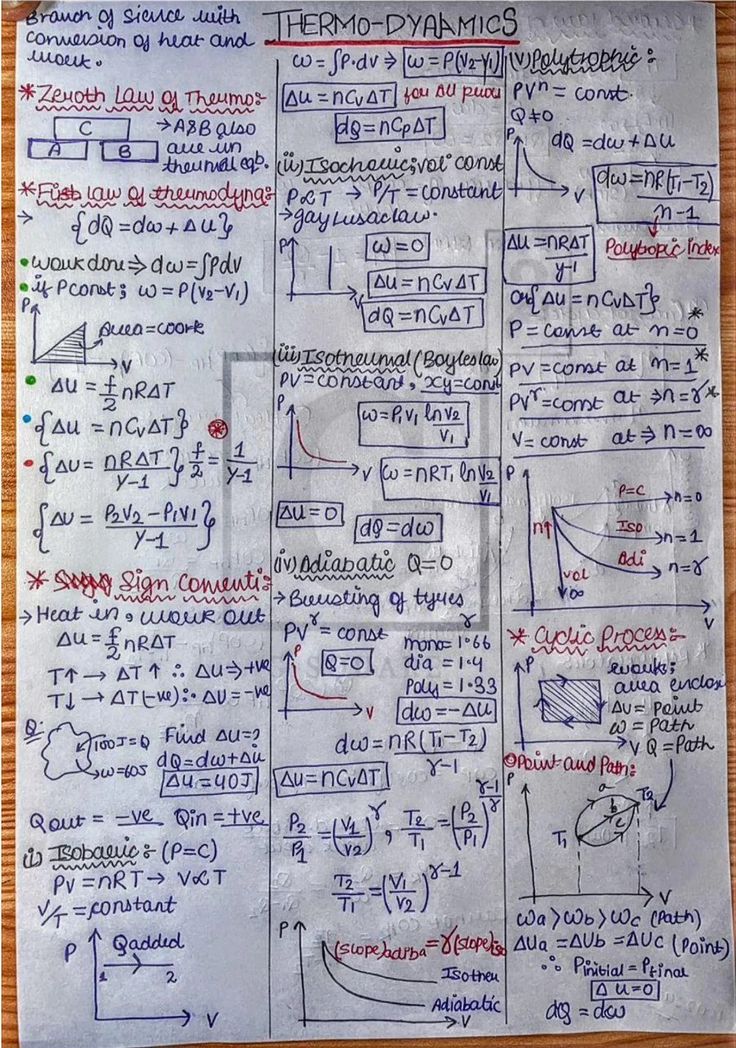 THERMO-DYAAMICS
Branch of Sience with
conversion of heat and
work.
*Zeroth Law of Thermo:-
C
A B
→A&B also
are in
thermal eqb.
*First law of thermodyna:-
→ {dQ = dw + ΔU}
work done ⇒ dw = ∫Pdv
if P const; w = P(V2-V1)
P
Area = work
V
ΔU = f/2 nRΔT
{ΔU = nCvΔT}
{ΔU = nRΔT/γ-1} f/2 = 1/γ-1
{ΔU = P2V2 - P1V1/γ-1}
* Sign Conventi:-
→ Heat in, work out
ΔU = f/2 nRΔT
T↑ → ΔT↑ ∴ ΔU ⇒ +ve
T↓ → ΔT(-ve) ∴ ΔU = -ve
Q:
100J = Q
→w=60J
Find ΔU=?
dQ = dw + Δu
ΔU = 40J
Qout = -ve Qin = +ve
(i) Isobaric:- (P=C)
PV = nRT → V∝T
V/T = constant
P
Qadded
1 2
V
w = ∫P.dv ⇒ w = P(V2-V1)
ΔU = nCvΔT for all
dQ = nCpΔT
(ii) Isochoric; vol const
P∝T → P/T = constant
→ gay lusac law.
P
V
w = 0
ΔU = nCvΔT
dQ = nCvΔT
(iii) Isothermal (Boyles law)
PV = constant, xy = const
P
V
w = P1V1 ln V2/V1
w = nRT1 ln V2/V1
ΔU = 0
dQ = dw
(iv) Adiabatic Q = 0
→ Bursting of tyres
PV^γ = const
γ
mono = 1.66
dia = 1.4
Poly = 1.33
P
Q=0
V
dw = -ΔU
dw = nR(T1-T2)/γ-1
ΔU = nCvΔT
P2/P1 = (V1/V2)^γ, T2/T1 = (P2/P1)^γ-1/γ
T2/T1 = (V1/V2)^γ-1
P
(slope)adiba = γ(slope)iso
Isother
Adiabatic
V
(v) Polytrophic:-
PV^n = const.
Q≠0
dQ = dw + ΔU
P
V
dw = nR(T1-T2)/n-1
Polytopic index
ΔU = nRΔT/γ-1
or {ΔU = nCvΔT}
P = const at n=0*
PV = const at n=1*
PV^γ = const at ⇒ n=γ*
V = const at ⇒ n=∞
P
P=C n=0
n↑
Iso n=1
Adi n=γ
vol
∞
V
* Cyclic Process:-
P
V
work;
area enclos
ΔU = Point
w = Path
Q = Path
Point and Path:-
P
a
b
c
T2
T1
V
wa > wb > wc (Path)
ΔUa = ΔUb = ΔUc (Point)
∴ Pinitial = Pfinal
ΔU=0
dQ = dw